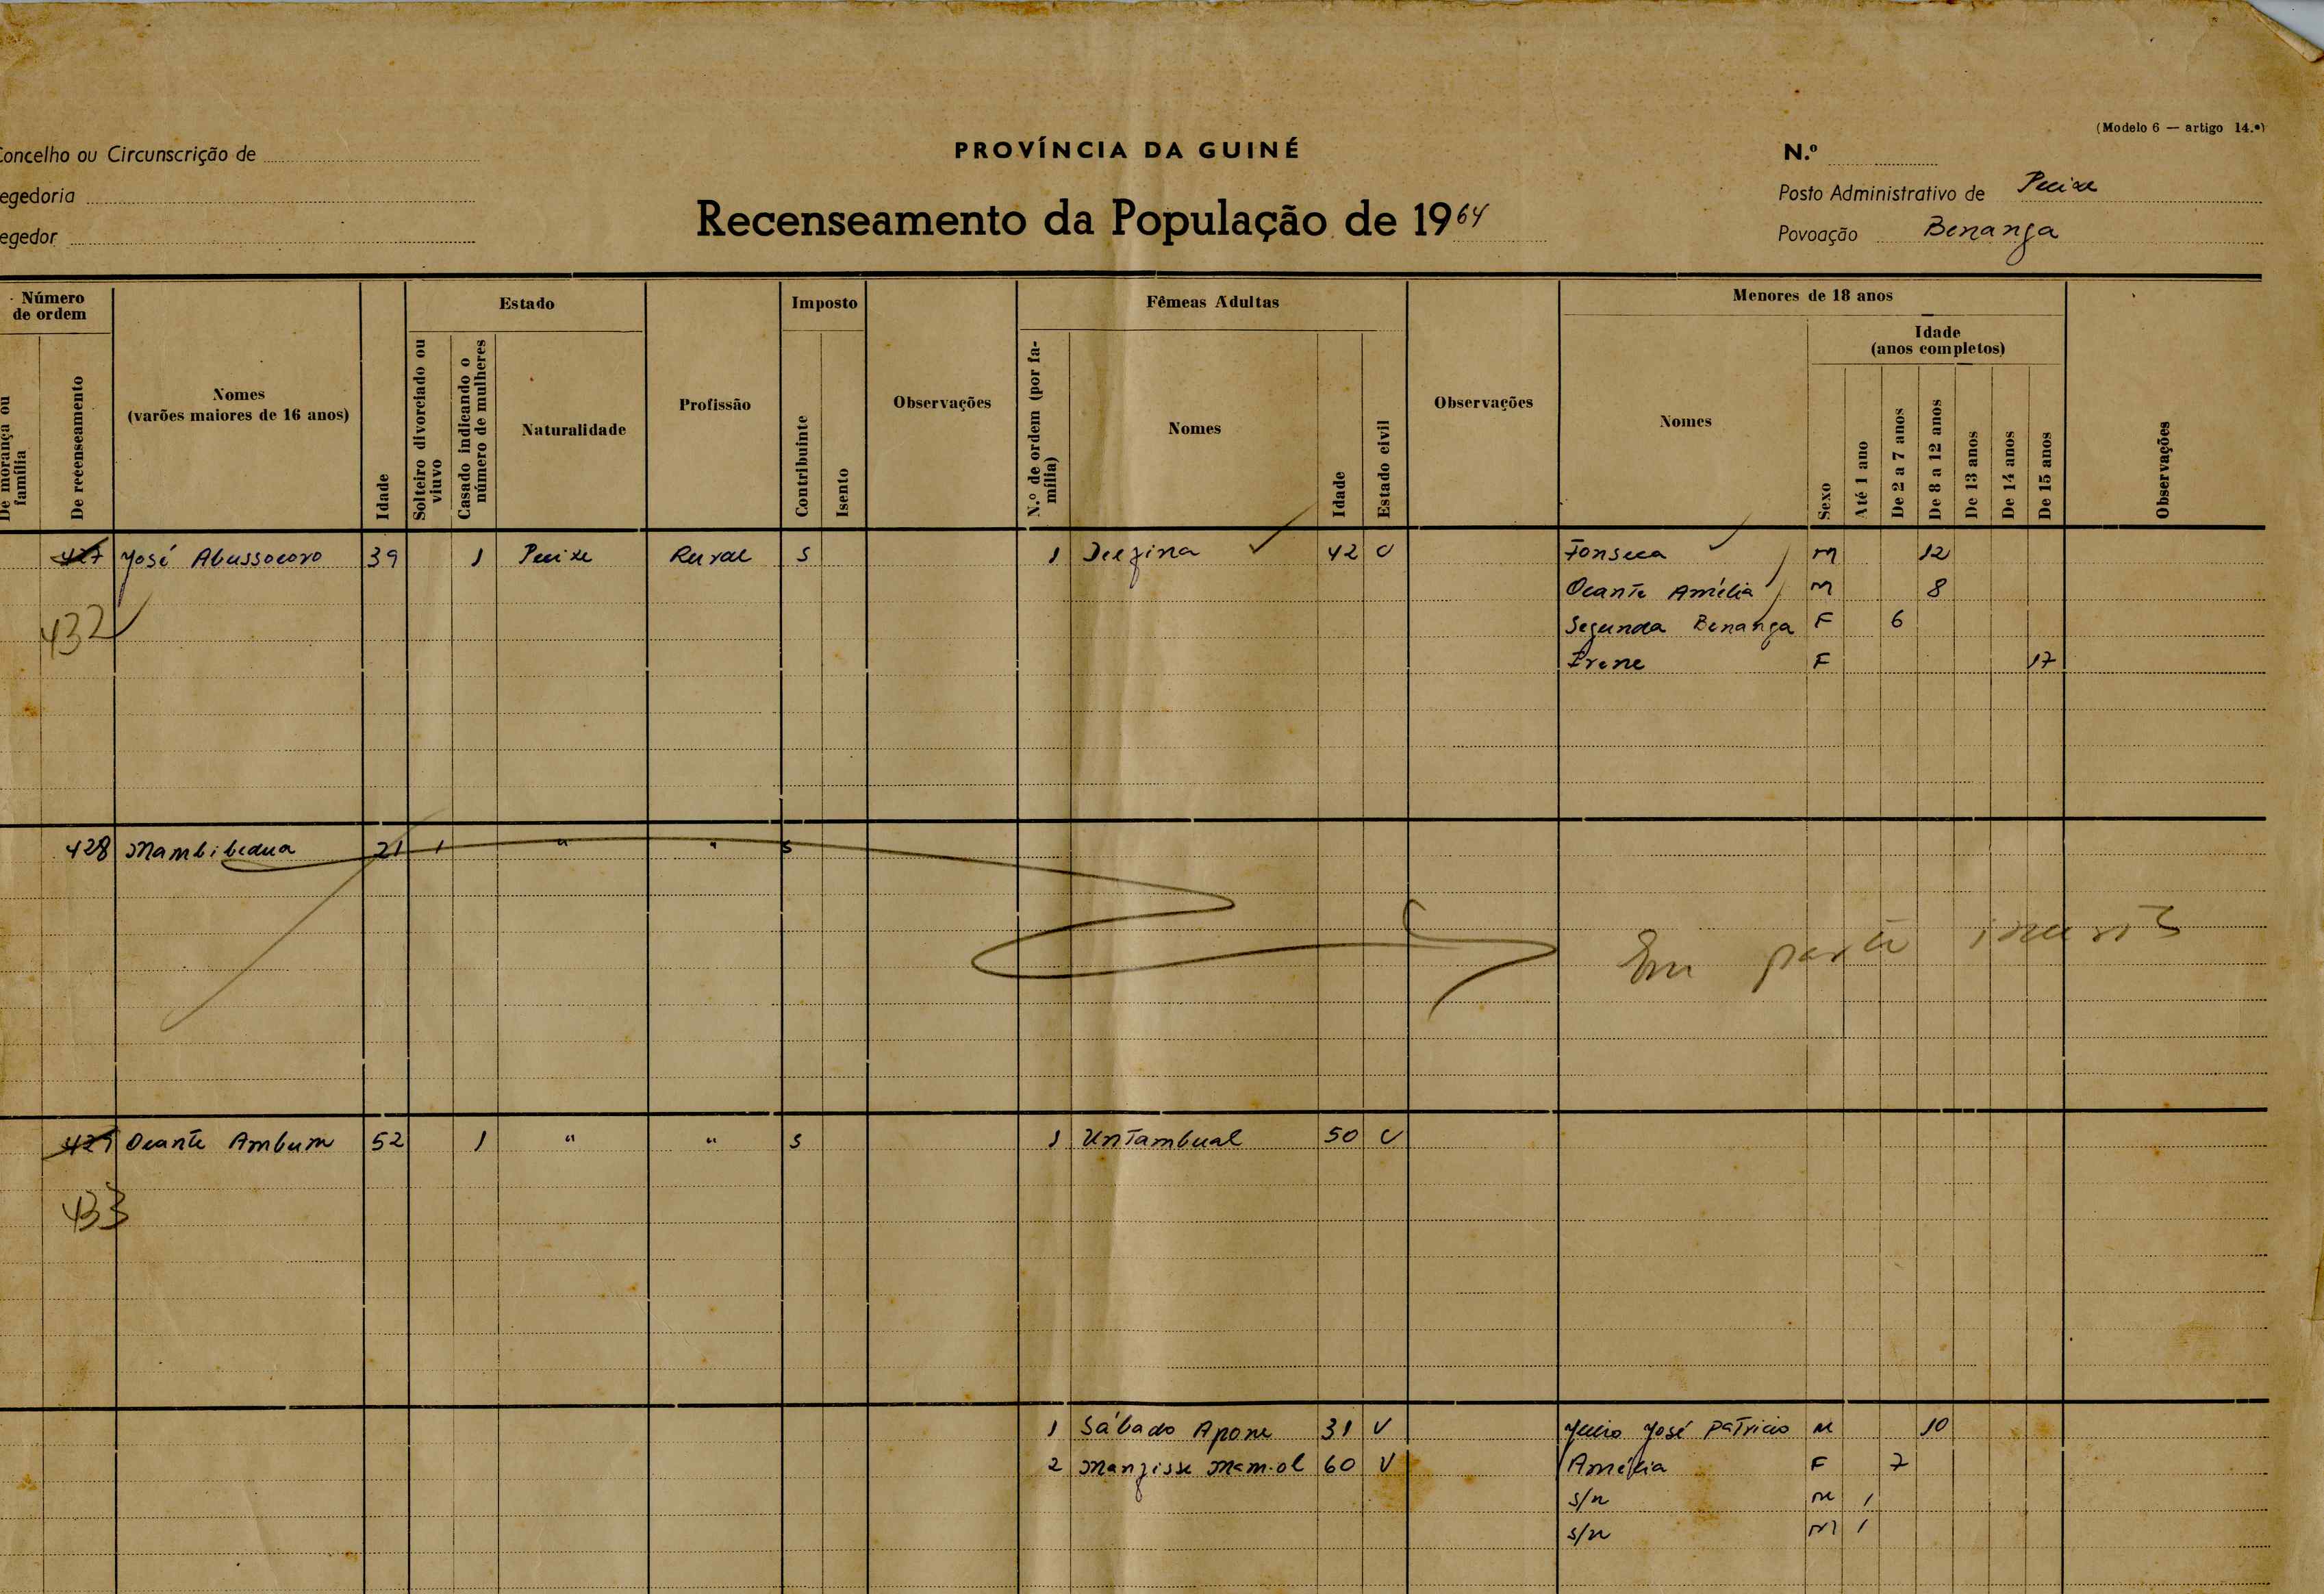 (Modelo 6 — artigo 14.º)
Concelho ou Circunscrição de
PROVÍNCIA DA GUINÉ
N.º
egedoria
Posto Administrativo de Pecixe
Recenseamento da População de 1964
egedor
Povoação Benanga
Número de ordem
De morança ou família
De recenseamento
Nomes
(varões maiores de 16 anos)
Idade
Estado
Solteiro divorciado ou viuvo
Casado indicando o número de mulheres
Naturalidade
Profissão
Imposto
Contribuinte
Isento
Observações
Fêmeas Adultas
N.º de ordem (por família)
Nomes
Idade
Estado civil
Observações
Menores de 18 anos
Nomes
Sexo
Idade
(anos completos)
Até 1 ano
De 2 a 7 anos
De 8 a 12 anos
De 13 anos
De 14 anos
De 15 anos
Observações
427 José Abussocoro 39 1 Pecixe Rural S 1 42 C Fonseca M 12
Ocante Amélia M 8
432 Segunda Benanga F 6
Irene F 17
428 Mambibedua 21 1 " " S
Em parte
429 Ocante Ambum 52 1 " " S 1 Untambual 50 C
433
1 Sábado Apone 31 V Julio José Patricio M 10
2 60 V Amélia F 7
s/n M 1
s/n M 1